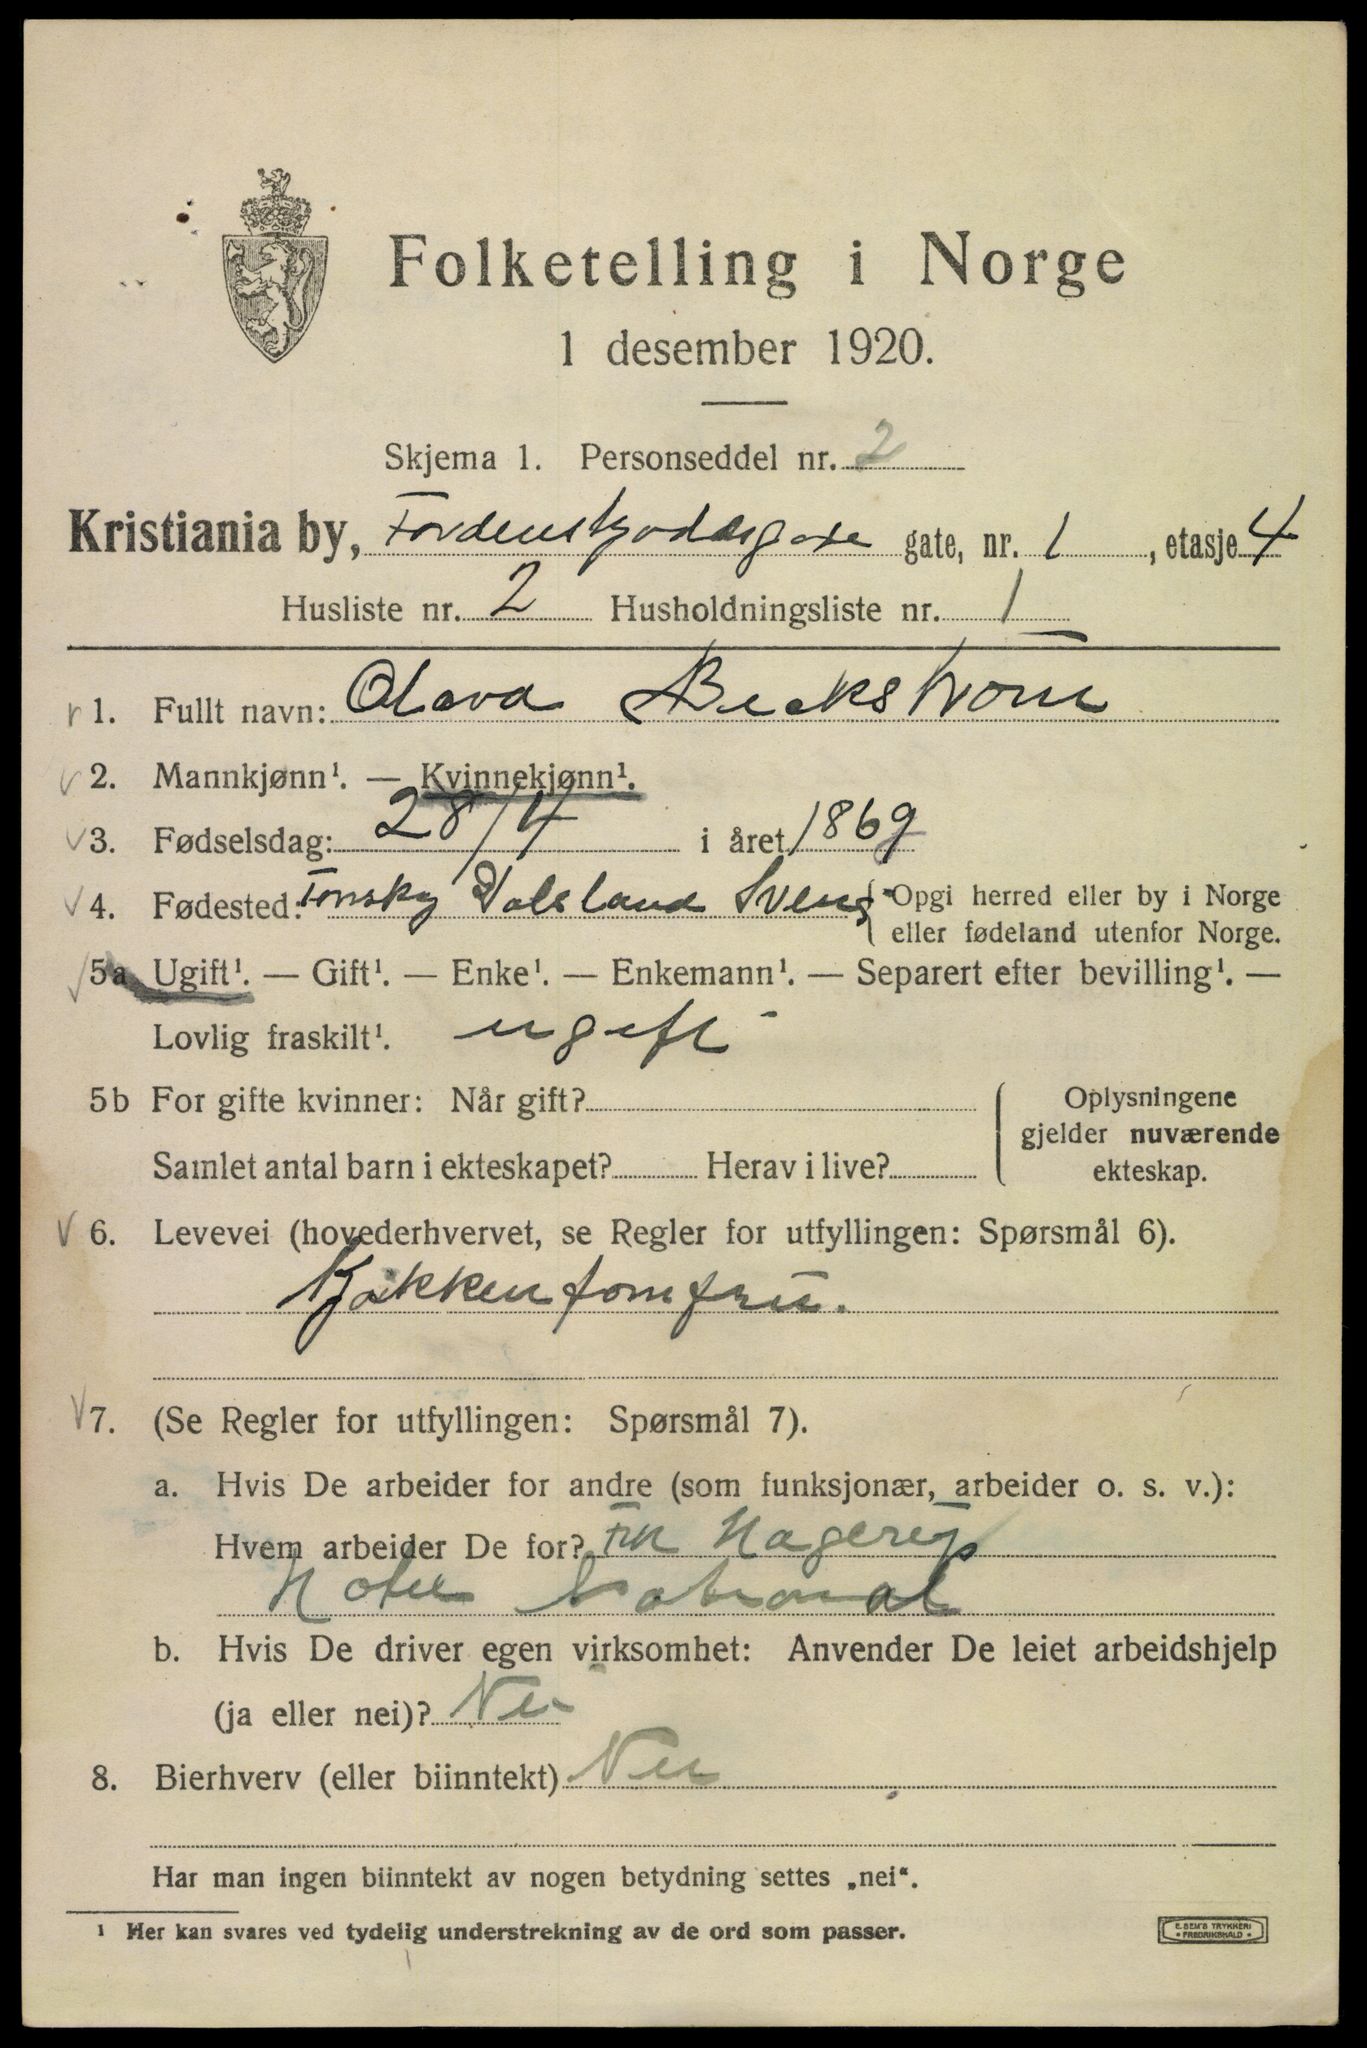 Folketelling i Norge
1 desember 1920.
Skjema 1. Personseddel nr. 2
Kristiania by, Tordenskjoldsgate gate, nr. 1, etasje 4
Husliste nr. 2 Husholdningsliste nr. 1
1. Fullt navn: Olava Beckstrøm
2. Mannkjønn¹. — Kvinnekjønn¹.
3. Fødselsdag: 28/4 i året 1869
4. Fødested: Dalsland { Opgi herred eller by i Norge
eller fødeland utenfor Norge.
5a Ugift¹. — Gift¹. — Enke¹. — Enkemann¹. — Separert efter bevilling¹. —
Lovlig fraskilt¹. ugift
5b For gifte kvinner: Når gift? Oplysningene
gjelder nuværende
Samlet antal barn i ekteskapet? Herav i live? ekteskap.
6. Levevei (hovederhvervet, se Regler for utfyllingen: Spørsmål 6).
Kjøkkenjomfru.
7. (Se Regler for utfyllingen: Spørsmål 7).
a. Hvis De arbeider for andre (som funksjonær, arbeider o. s. v.):
Hvem arbeider De for? Frk Hagerup
Hotel National
b. Hvis De driver egen virksomhet: Anvender De leiet arbeidshjelp
(ja eller nei)? Nei
8. Bierhverv (eller biinntekt) Nei
Har man ingen biinntekt av nogen betydning settes „nei“.
¹ Her kan svares ved tydelig understrekning av de ord som passer.
E. SEM'S TRYKKERI
• FREDRIKSHALD •